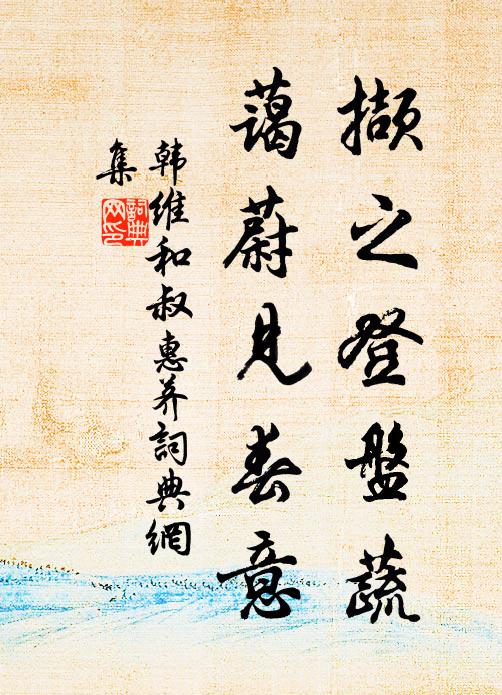 擷之登盤蔬
藹蔚見春意
韩维和叔惠荠詞典網
集
詞典
网印